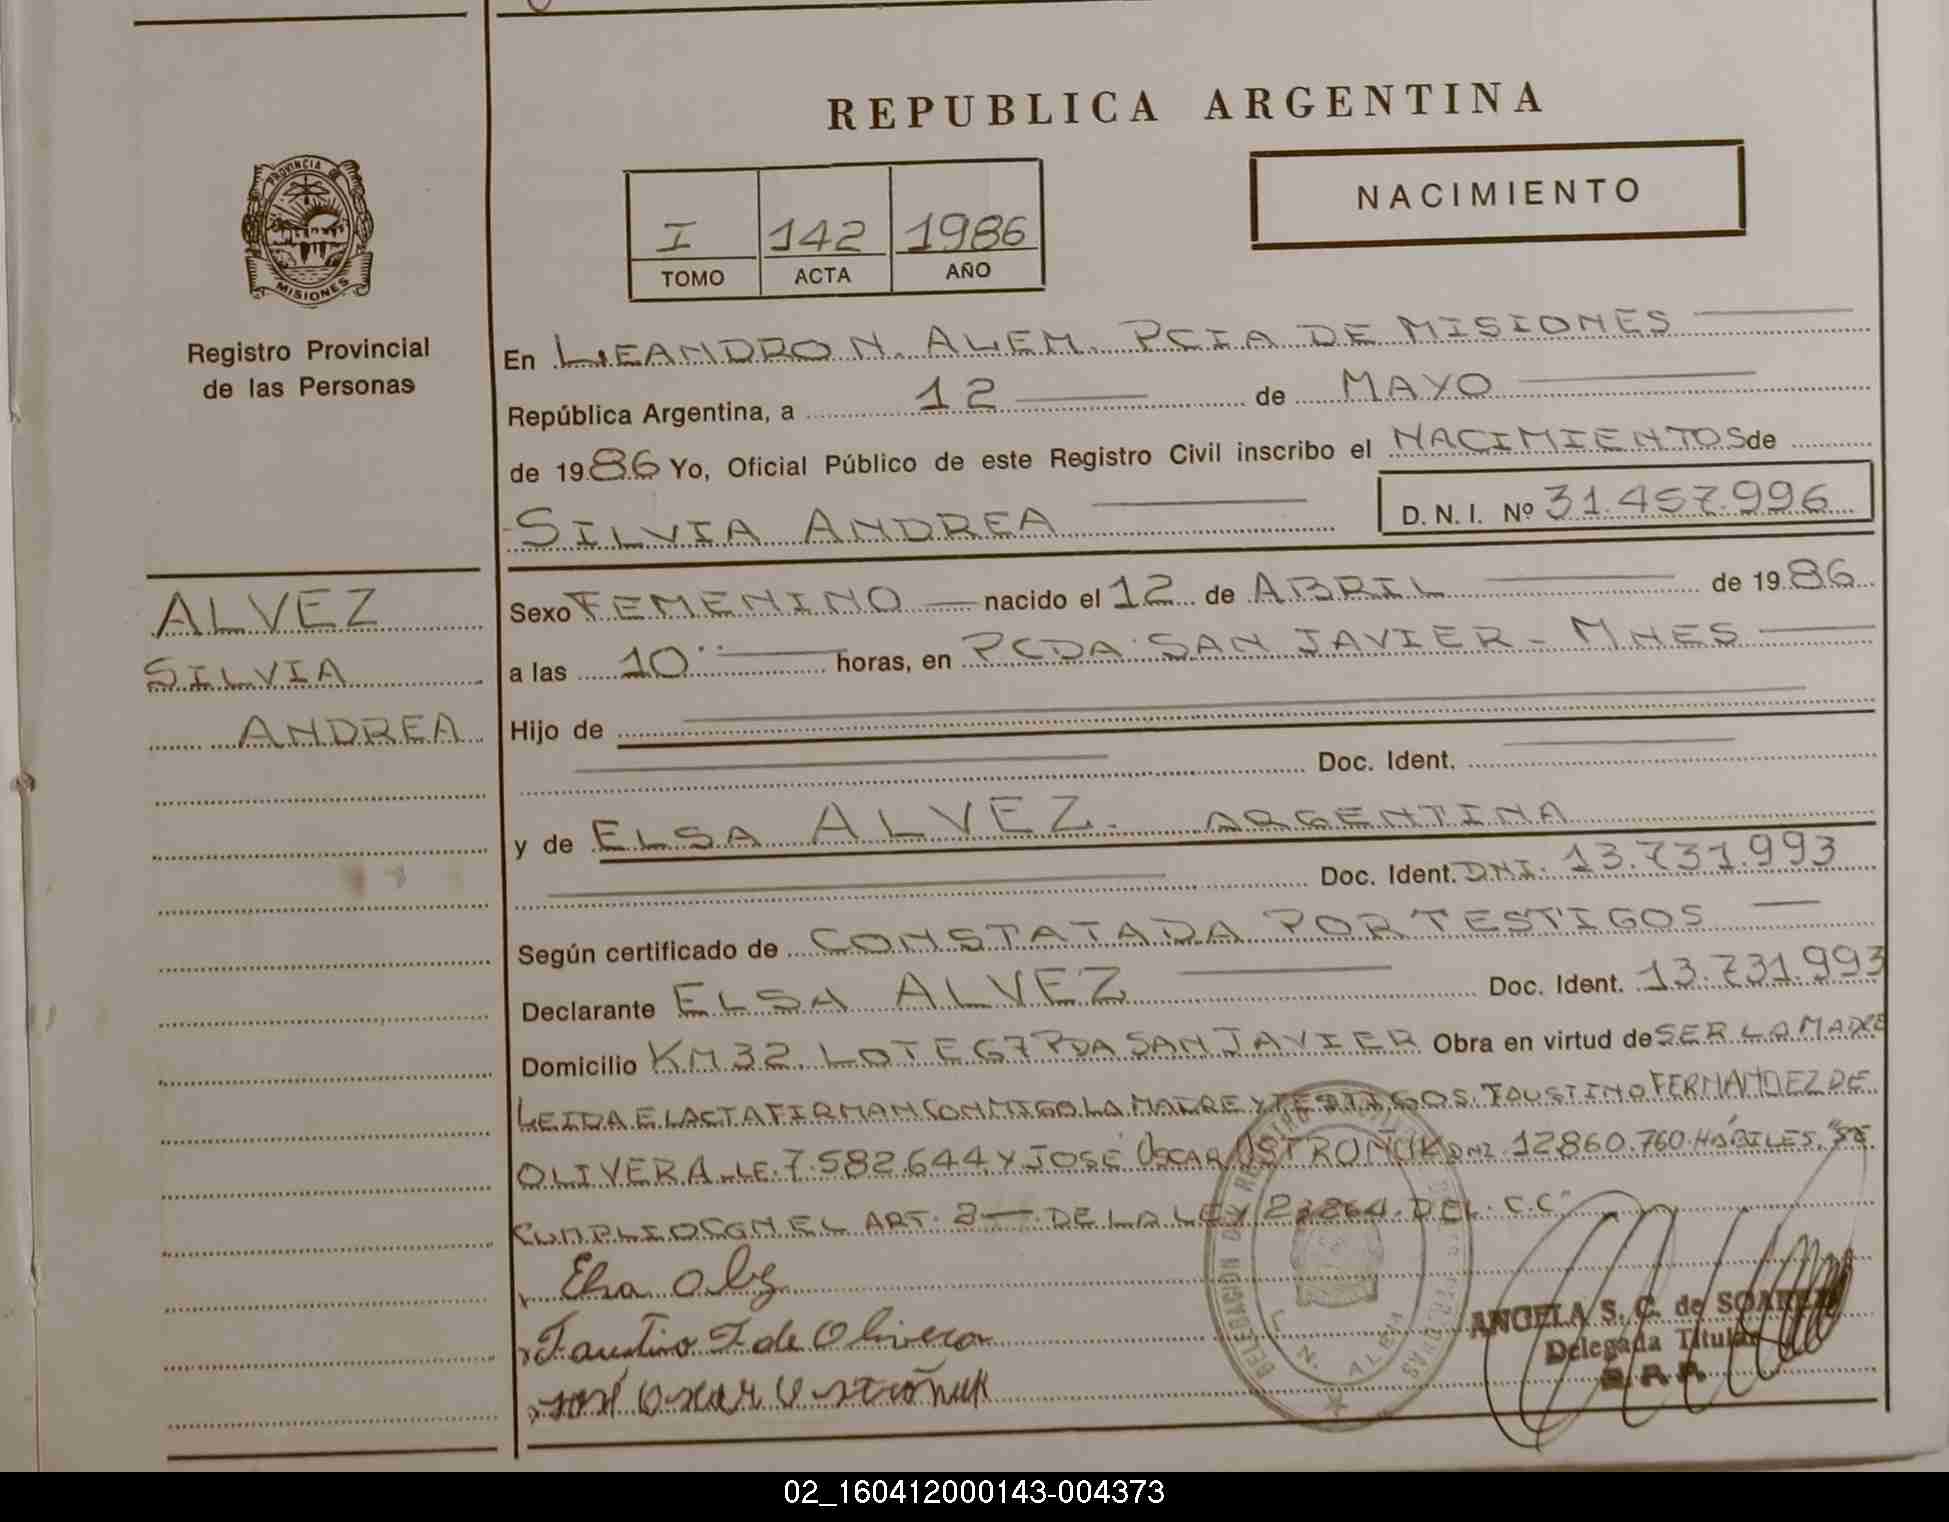 REPUBLICA ARGENTINA
NACIMIENTO
I 142 1986
TOMO ACTA AÑO
PROVINCIA DE
MISIONES
Registro Provincial
de las Personas
ALVEZ
SILVIA
ANDREA
En LEANDRO N. ALEM. PCIA DE MISIONES
República Argentina, a 12 de MAYO
de 1986 Yo, Oficial Público de este Registro Civil inscribo el NACIMIENTOS de
SILVIA ANDREA D. N. I. Nº 31.457.996
Sexo FEMENINO nacido el 12 de ABRIL de 1986
a las 10 horas, en PCDA SAN JAVIER - MNES
Hijo de
Doc. Ident.
y de ELSA ALVEZ. ARGENTINA
Doc. Ident. DNI. 13.731.993
Según certificado de CONSTATADA POR TESTIGOS
Declarante ELSA ALVEZ Doc. Ident. 13.731.993
Domicilio KM 32. LOTE 67 PDA SAN JAVIER Obra en virtud de SER LA MADRE
LEIDA EL ACTA FIRMAN CONMIGO LA MADRE Y TESTIGOS. FAUSTINO FERNANDEZ DE
OLIVERA LE. 7.582.644 Y JOSÉ OSCAR OSTROÑUK DNI. 12860.760. HÁBILES. "SE
CUMPLIO CON EL ART. 2 DE LA LEY 23264 DEL C.C"
Elsa Alvez
Faustino F de Olivera
José Oscar Ostroñuk
DELEGACION DE REGISTRO
L. N. ALEM
ANGELA S. C. de SOAREZ
Delegada Titular
02_160412000143-004373